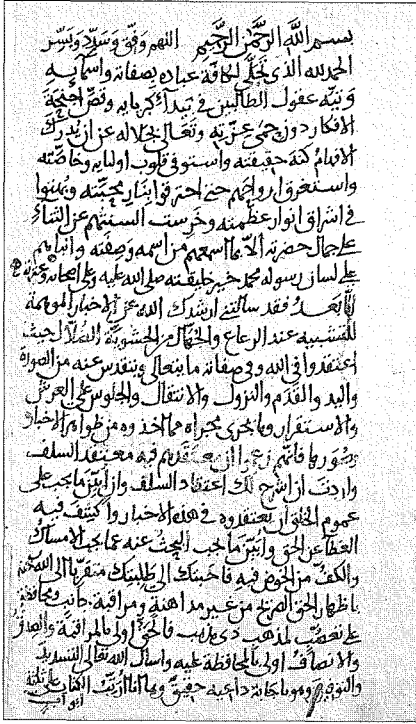 بسم الله الرحمن الرحيم اللهم وفق وسدد ويسر
الحمد لله الذي تجلى لكافة عباده بصفاته واسمايه
وتيه عقول الطالبين في بيدآء كبريايه وقص اجنحة
الافكار دون حمى عزته وتعالى بجلاله عن ان تدرك
الافهام كنه حقيقته واستوفى قلوب اوليايه وخاصته
واستغرق ارواحهم حتى احترقوا بنار محبته وبهتوا
في اشراق انوار عظمته وخرست السنتهم عن الثناء
على جمال حضرته الا بما اسمعهم من اسمه وصفته وانباهم
على لسان رسوله محمد خير خليقته صلى الله عليه وعلى اصحابه وعترته
اما بعد فقد سالتني ارشدك الله عن الاخبار الموهمة
للتشبيه عند الرعاع والجهال من الحشوية الضلال حيث
اعتقدوا في الله وفي صفاته ما يتعالى ويتقدس عنه من الصورة
واليد والقدم والنزول والانتقال والجلوس على العرش
والاستقرار وما يجري مجراه مما اخذوه من ظواهر الاخبار
وصورها وانهم زعموا ان معتقدهم فيه معتقد السلف
واردت ان اشرح لك اعتقاد السلف وان ابين ما يجب على
عموم الخلق ان يعتقدوه في هذه الاخبار واكشف فيه
الغطا عن الحق وابين ما يجب البحث عنه عما يجب الامساك
والكف عن الخوض فيه فاجبتك الى طلبتك متقربا الى الله
باظهار الحق الصريح من غير مداهنة ومراقبة جانب ومحافظة
على تعصب لمذهب دى مذهب فالحق اولى بالمراقبة والصدق
والانصاف اولى بالمحافظة عليه واسال الله تعالى التسديد
والتوفيق وهو باجابة داعيه حقيق وها انا ارتب الكتاب على ثلثة
ابواب